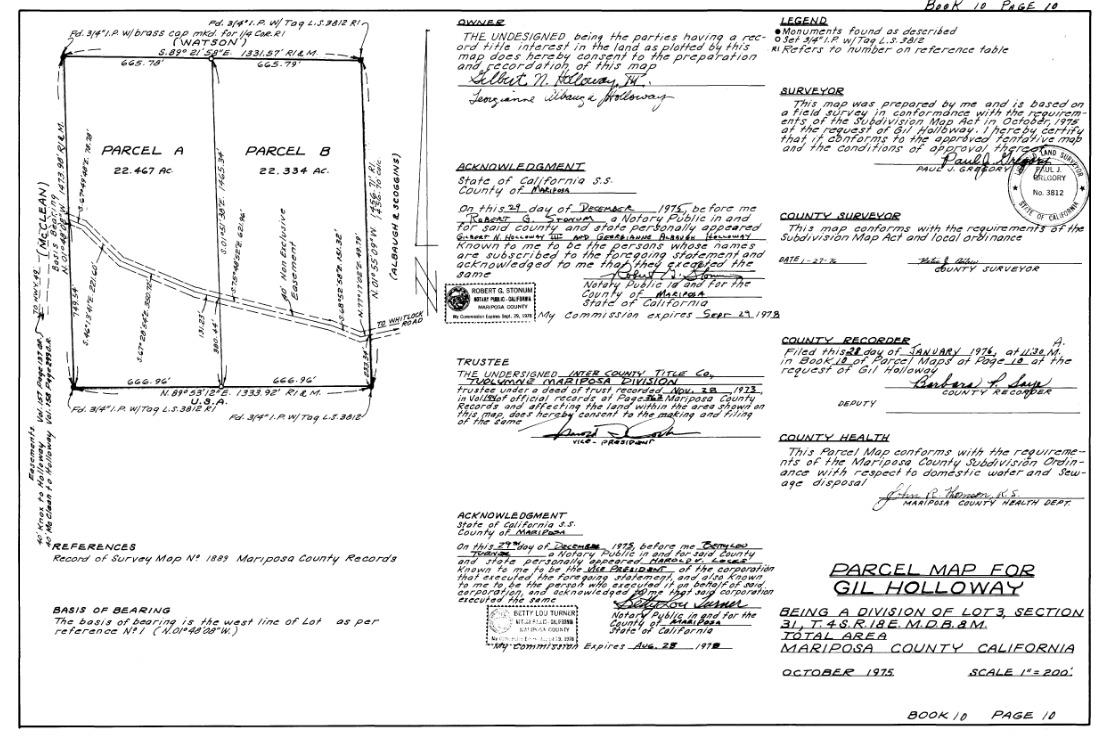 BOOK 10 PAGE 10
Fd. 3/4" I.P. W/Tag L.S. 3812 R1
Fd. 3/4" I.P. w/brass cap mkd. for 1/4 Cor. R1
(WATSON)
S. 89° 21' 58" E 1331.57' R1 & M.
665.78' 665.79'
PARCEL A
22.467 AC.
PARCEL B
22.334 AC.
(McCLEAN)
Basis Bearing
N. 01° 48' 08" W. 1473.98' R1 & M.
TO HWY. 49
149.54'
S. 67° 49' 48" E. 78.78'
S. 46° 13' 41" E. 221.60'
S. 67° 28' 54" E. 350.92'
S. 01° 51' 38" E. 1465.34'
131.23'
380.44'
S. 75° 46' 55" E. 621.96'
40' Non Exclusive
Easement
S. 68° 52' 58" E. 151.32'
49.78'
N. 01° 55' 09" W. 1456.71' R1
1456.70 calc.
(ALBAUGH & SCOGGINS)
TO WHITLOCK
ROAD
666.96' 666.96'
N. 89° 53' 12" E. 1333.92' R1 & M.
U.S.A.
Fd. 3/4" I.P. w/Tag L.S. 3812 R1
Fd. 3/4" I.P. W/Tag L.S. 3812
Easements
40' Knox to Holloway Vol. 157 Page 137 O.R.
40' McClean to Holloway Vol. 158 Page 293 O.R.
REFERENCES
Record of Survey Map Nº 1889 Mariposa County Records
BASIS OF BEARING
The basis of bearing is the west line of Lot as per
reference Nº 1 (N. 01° 48' 08" W.)
OWNER
THE UNDESIGNED being the parties having a rec-
ord title interest in the land as plotted by this
map does hereby consent to the preparation
and recordation of this map
Gilbert N. Holloway, III
Georgianne Albaugh Holloway
ACKNOWLEDGMENT
State of California S.S.
County of MARIPOSA
On this 29 day of DECEMBER 1975, before me
ROBERT G. STONUM a Notary Public in and
for said county and state personally appeared
GILBERT N. HOLLOWAY III AND GEORGIANNE ALBAUGH HOLLOWAY
Known to me to be the persons whose names
are subscribed to the foregoing statement and
acknowledged to me that they executed the
same Robert G. Stonum
Notary Public id and for the
County of MARIPOSA
State of California
ROBERT G. STONUM
NOTARY PUBLIC - CALIFORNIA
MARIPOSA COUNTY
My Commission Expires Sept. 29, 1978
My commission expires SEPT 29, 1978
TRUSTEE
THE UNDERSIGNED INTER COUNTY TITLE Co,
TUOLUMNE MARIPOSA DIVISION
trustee under a deed of trust recorded NOV. 28, 1973,
in Vol of official records at Page 363 Mariposa County
Records and affecting the land within the area shown on
this map, does hereby consent to the making and filing
of the same
VICE-PRESIDENT
ACKNOWLEDGMENT
State of California s.s.
County of MARIPOSA
On this 29th day of DECEMBER 1975, before me BETTY LOU
TURNER a Notary Public in and for said County
and state personally appeared HAROLD
Known to me to be the VICE PRESIDENT of the corporation
that executed the foregoing statement, and also Known
to me to be the person who executed it on behalf of said
corporation, and acknowledged to me that said corporation
executed the same
Betty Lou Turner
Notary Public in and for the
County of MARIPOSA
State of California
BETTY LOU TURNER
NOTARY PUBLIC - CALIFORNIA
MARIPOSA COUNTY
My Commission Expires AUG. 28 1978
LEGEND
Monuments found as described
Set 3/4" I.P. w/Tag L.S. 3812
R1 Refers to number on reference table
SURVEYOR
This map was prepared by me and is based on
a field survey in conformance with the requirem-
ents of the Subdivision Map Act in October, 1975
at the request of Gil Holloway. I hereby certify
that it conforms to the approved tentative map
and the conditions of approval thereof.
Paul J. Gregory
PAUL J. GREGORY
LAND SURVEYOR
PAUL J. GREGORY
No. 3812
STATE OF CALIFORNIA
COUNTY SURVEYOR
This map conforms with the requirements of the
Subdivision Map Act and local ordinance
DATE 1-27-76
COUNTY SURVEYOR
COUNTY RECORDER
Filed this 28 day of JANUARY 1976, at 11:30 A.M.
in Book 10 of Parcel Maps at Page 10 at the
request of Gil Holloway
COUNTY RECORDER
DEPUTY
COUNTY HEALTH
This Parcel Map conforms with the requireme-
nts of the Mariposa County Subdivision Ordin-
ance with respect to domestic water and Sew-
age disposal
John R. Thomson, R.S.
MARIPOSA COUNTY HEALTH DEPT.
PARCEL MAP FOR
GIL HOLLOWAY
BEING A DIVISION OF LOT 3, SECTION
31, T. 4 S. R. 18 E. M.D.B. & M.
TOTAL AREA
MARIPOSA COUNTY CALIFORNIA
OCTOBER 1975 SCALE 1" = 200'.
BOOK 10 PAGE 10